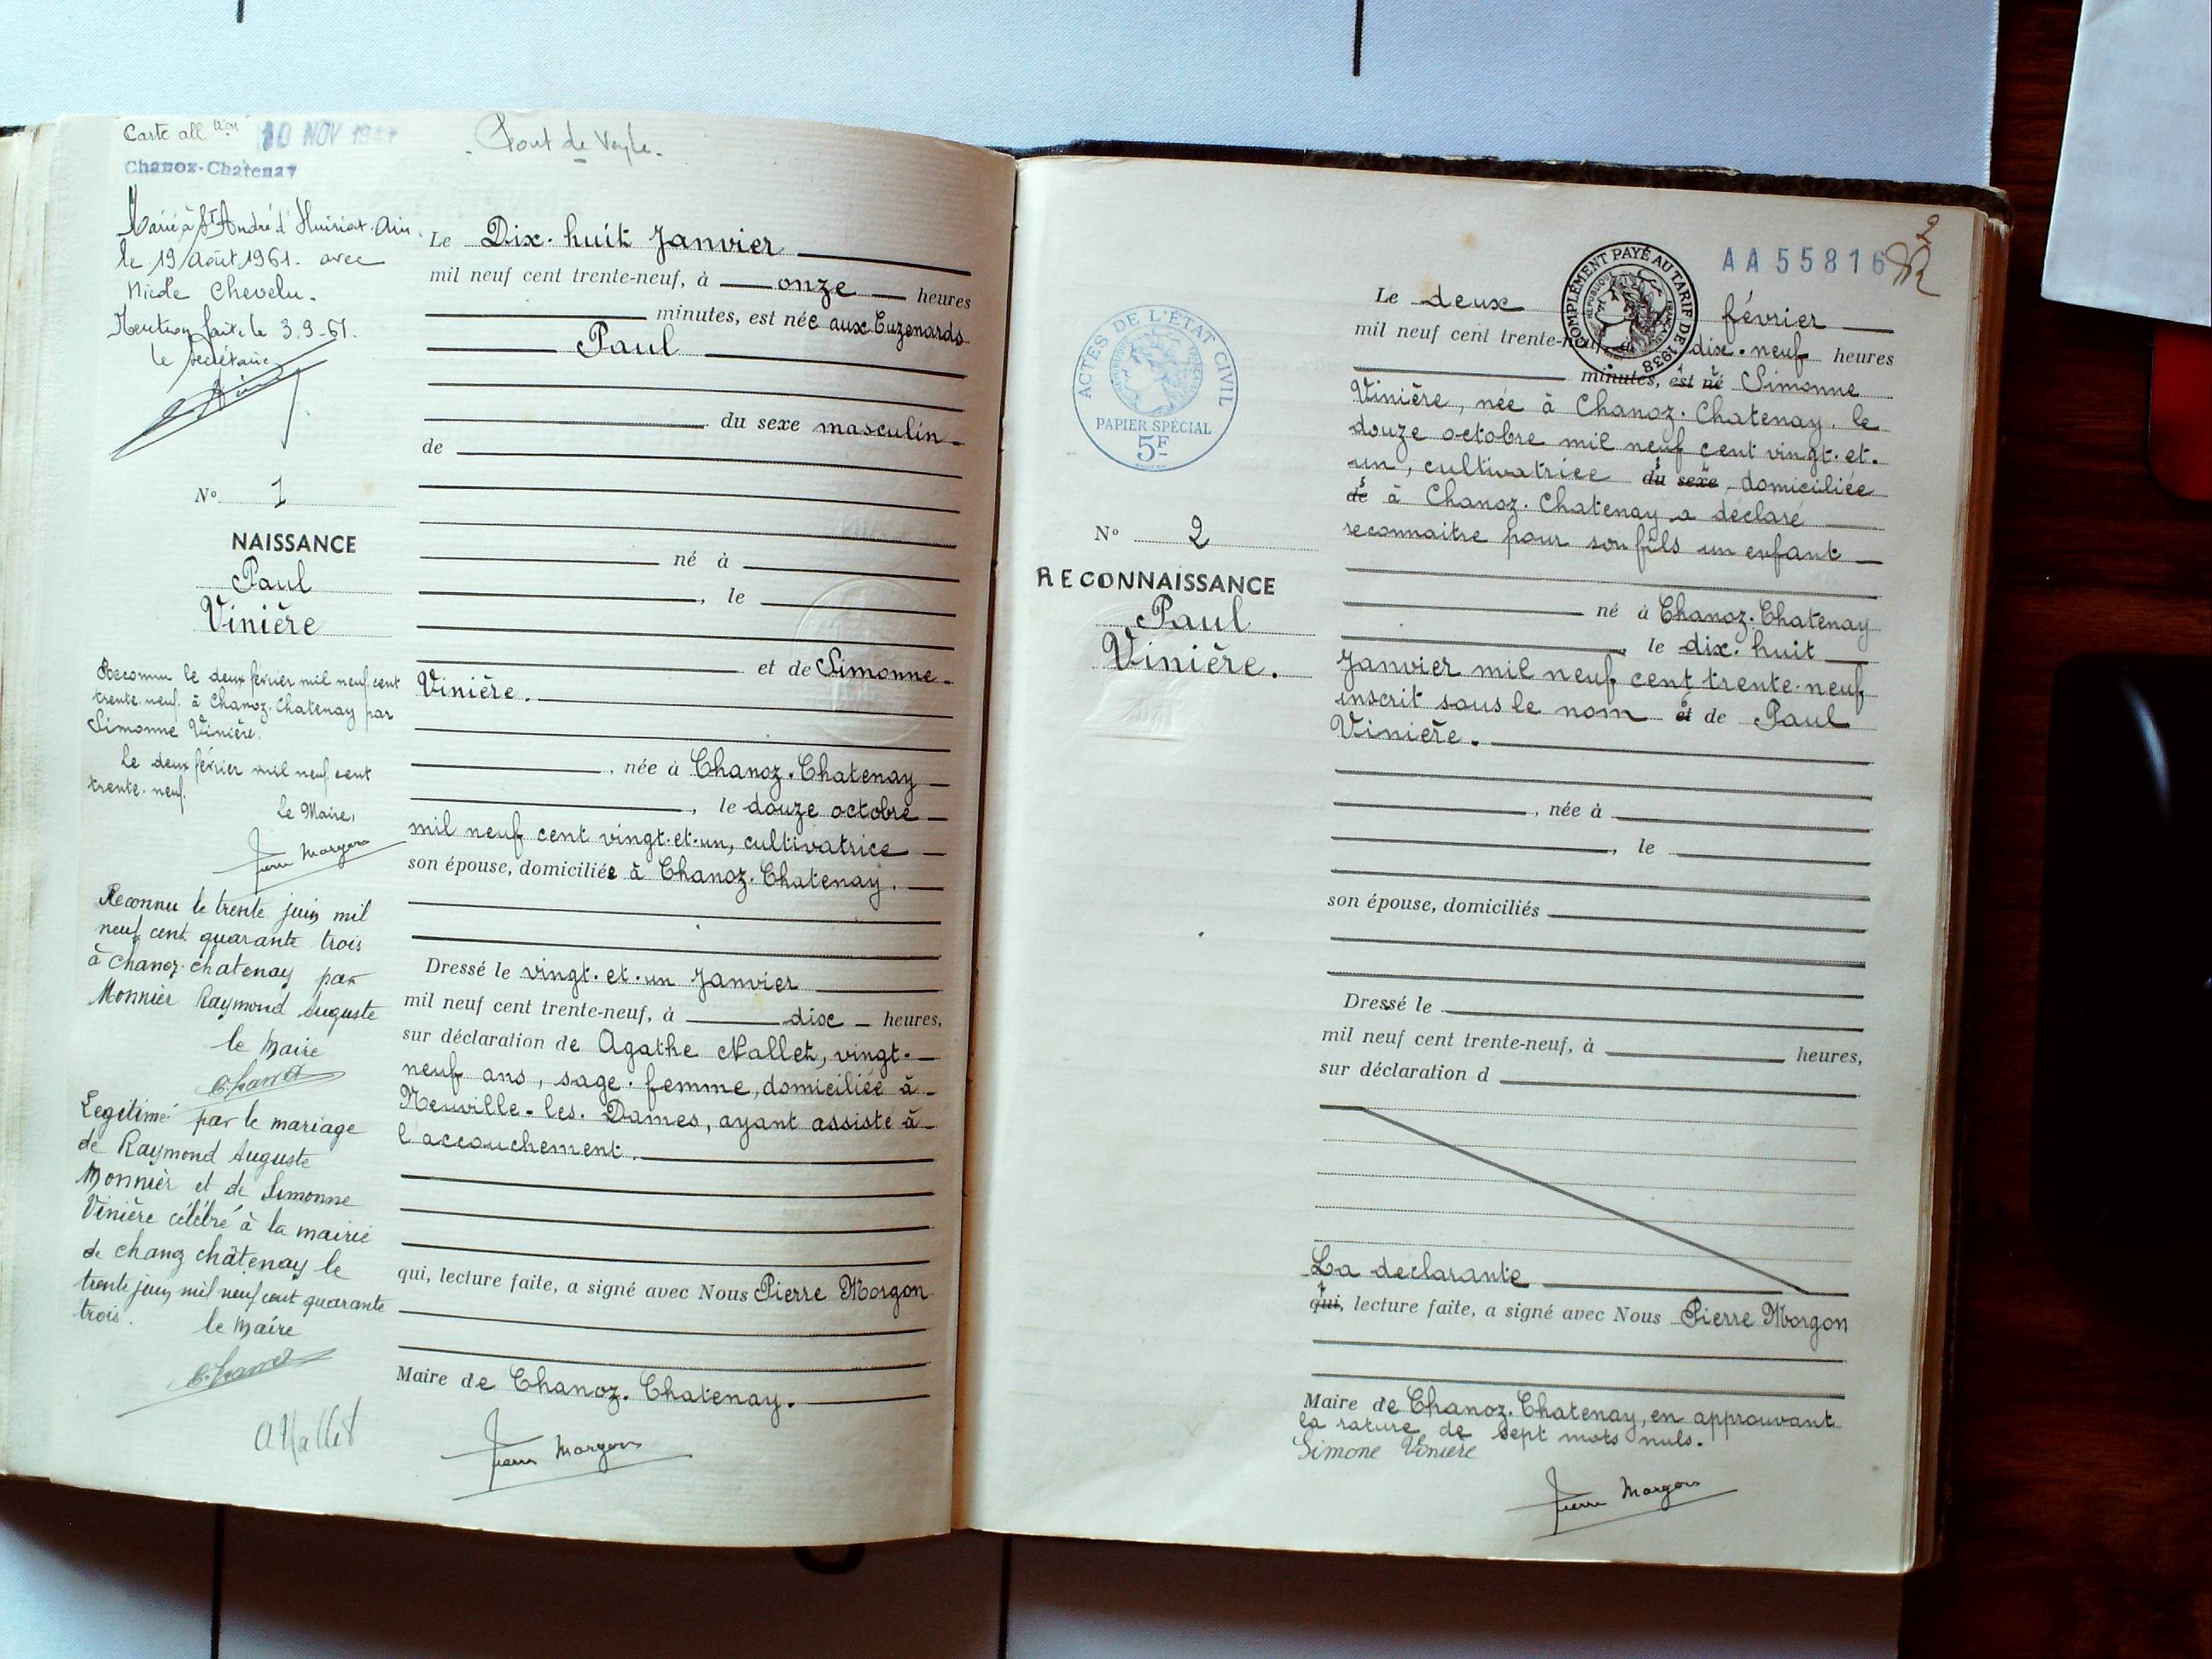 Carte all
10 NOV 194
Pont de Veyle.
Chanoz-Chatenay
Marié à St André d'Huiriat. Ain
le 19 Août 1961. avec
Nicole Chevelu.
Mention faite le 3.9.61.
le secrétaire
N° 1
NAISSANCE
Paul
Vinière
Reconnu le deux février mil neuf cent
trente-neuf. à Chanoz-Chatenay par
Simonne Vinière.
Le deux février mil neuf cent
trente-neuf.
Le Maire,
Pierre Morgon
Reconnu le trente juin mil
neuf cent quarante trois
à chanoz-chatenay par
Monnier Raymond Auguste
le Maire
Legitimé par le mariage
de Raymond Auguste
Monnier et de Simonne
Vinière célébré à la mairie
de chanoz châtenay le
trente juin mil neuf cent quarante
trois.
le Maire
Le Dix-huit Janvier
mil neuf cent trente-neuf, à onze heures
minutes, est née aux Euzenards
Paul
du sexe masculin
de
né à
, le
et de Simonne
Vinière.
, née à Chanoz-Chatenay
, le douze octobre
mil neuf cent vingt-et-un, cultivatrice
son épouse, domiciliée à Chanoz-Chatenay.
Dressé le vingt-et-un Janvier
mil neuf cent trente-neuf, à dix heures,
sur déclaration de Agathe Nallet, vingt-
neuf ans, sage-femme, domiciliée à
Neuville-les-Dames, ayant assisté à
l'accouchement.
qui, lecture faite, a signé avec Nous Pierre Morgon
Maire de Chanoz-Chatenay.
A Nallet
Pierre Morgon
2
AA 55816
COMPLÉMENT PAYÉ AU TARIF DE 1938
ACTES DE L'ÉTAT CIVIL
PAPIER SPÉCIAL
5F
N° 2
RECONNAISSANCE
Paul
Vinière.
Le deux février
mil neuf cent trente-neuf, à dix-neuf heures
minutes, est né Simonne
Vinière, née à Chanoz-Chatenay, le
douze octobre mil neuf cent vingt-et-
un, cultivatrice du sexe, domiciliée
de à Chanoz-Chatenay a déclaré
reconnaitre pour son fils un enfant
né à Chanoz-Chatenay
, le dix-huit
Janvier mil neuf cent trente-neuf
inscrit sous le nom et de Paul
Vinière.
, née à
, le
son épouse, domiciliés
Dressé le
mil neuf cent trente-neuf, à heures,
sur déclaration d
La déclarante
qui, lecture faite, a signé avec Nous Pierre Morgon
Maire de Chanoz-Chatenay, en approuvant
la rature de sept mots nuls.
Simone Vinière
Pierre Morgon